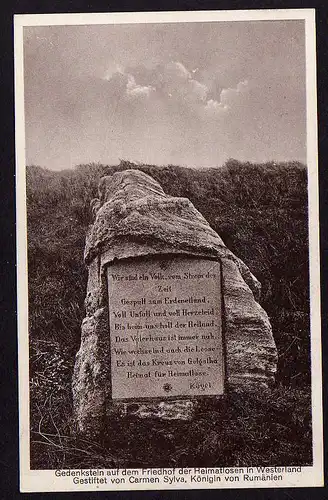 Wir sind ein Volk, vom Strom der
Zeit
Gespült zum Erdeneiland,
Voll Unfall und voll Herzeleid
Bis heim uns holt der Heiland.
Das Vaterhaus ist immer nah,
Wie wechselnd auch die Loose
Es ist das Kreuz von Golgatha
Heimat für Heimatlose.
Kögel.
Gedenkstein auf dem Friedhof der Heimatlosen in Westerland
Gestiftet von Carmen Sylva, Königin von Rumänien